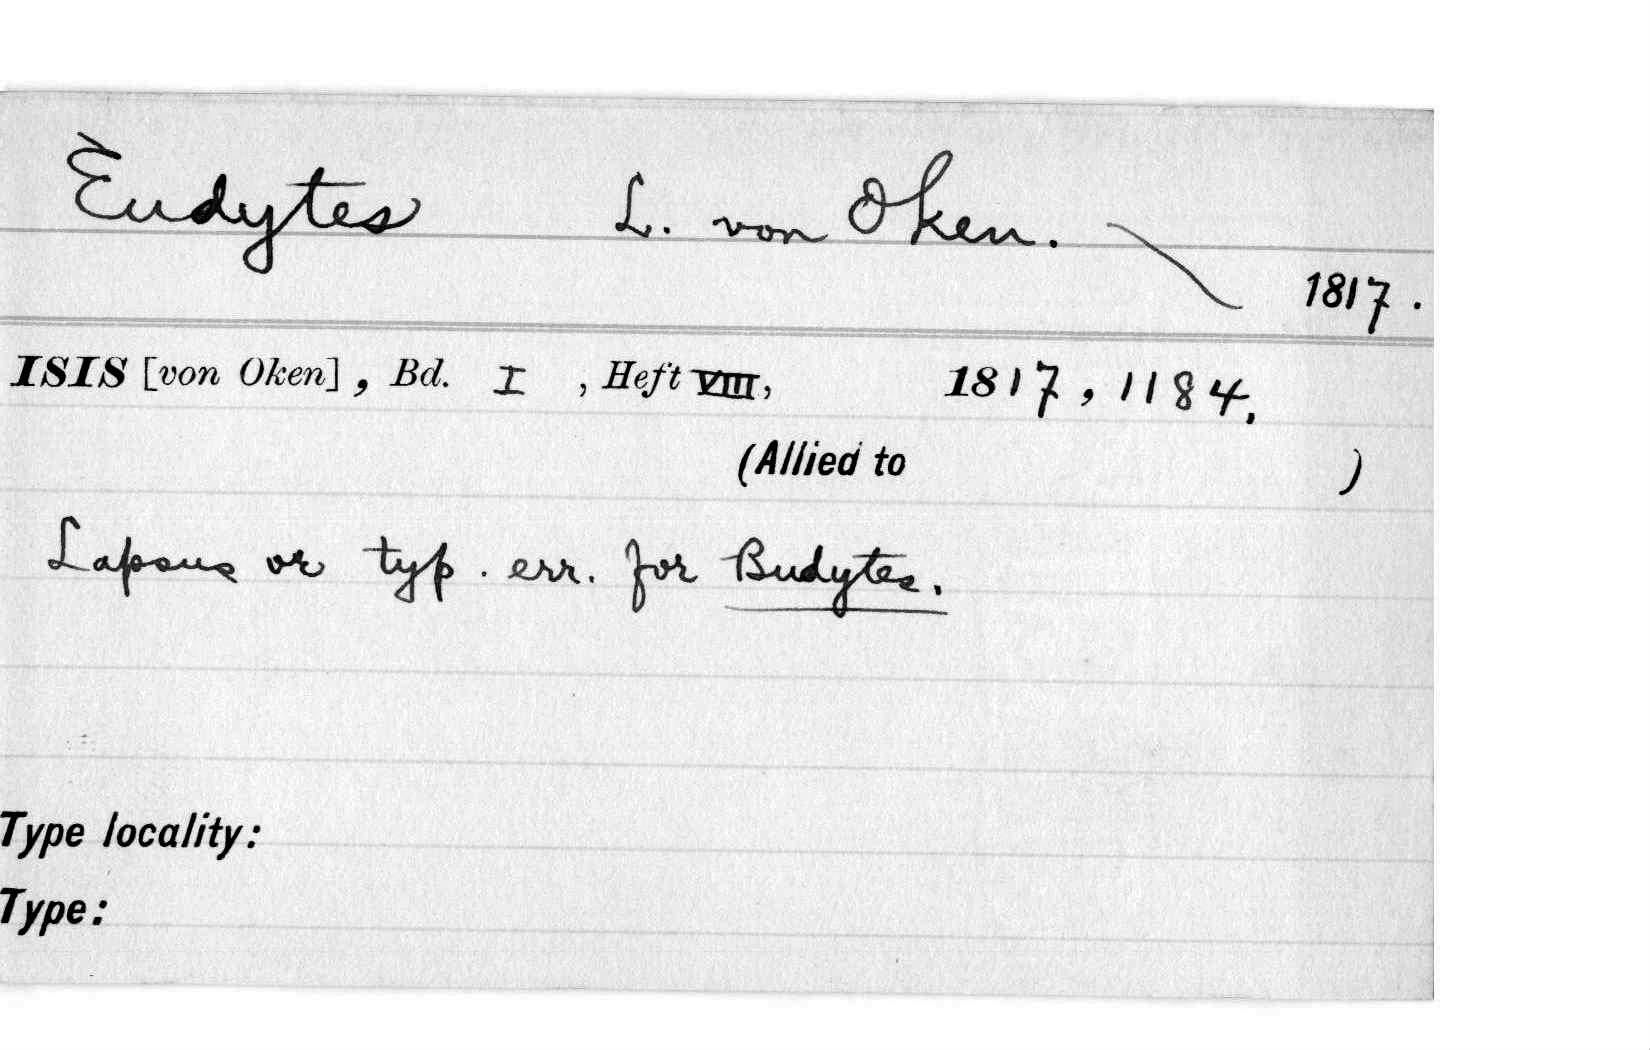 Eudytes L. von Oken.
1817.
ISIS [von Oken], Bd. I, Heft VIII, 1817, 1184.
(Allied to )
Lapsus or typ. err. for Budytes.
Type locality:
Type: